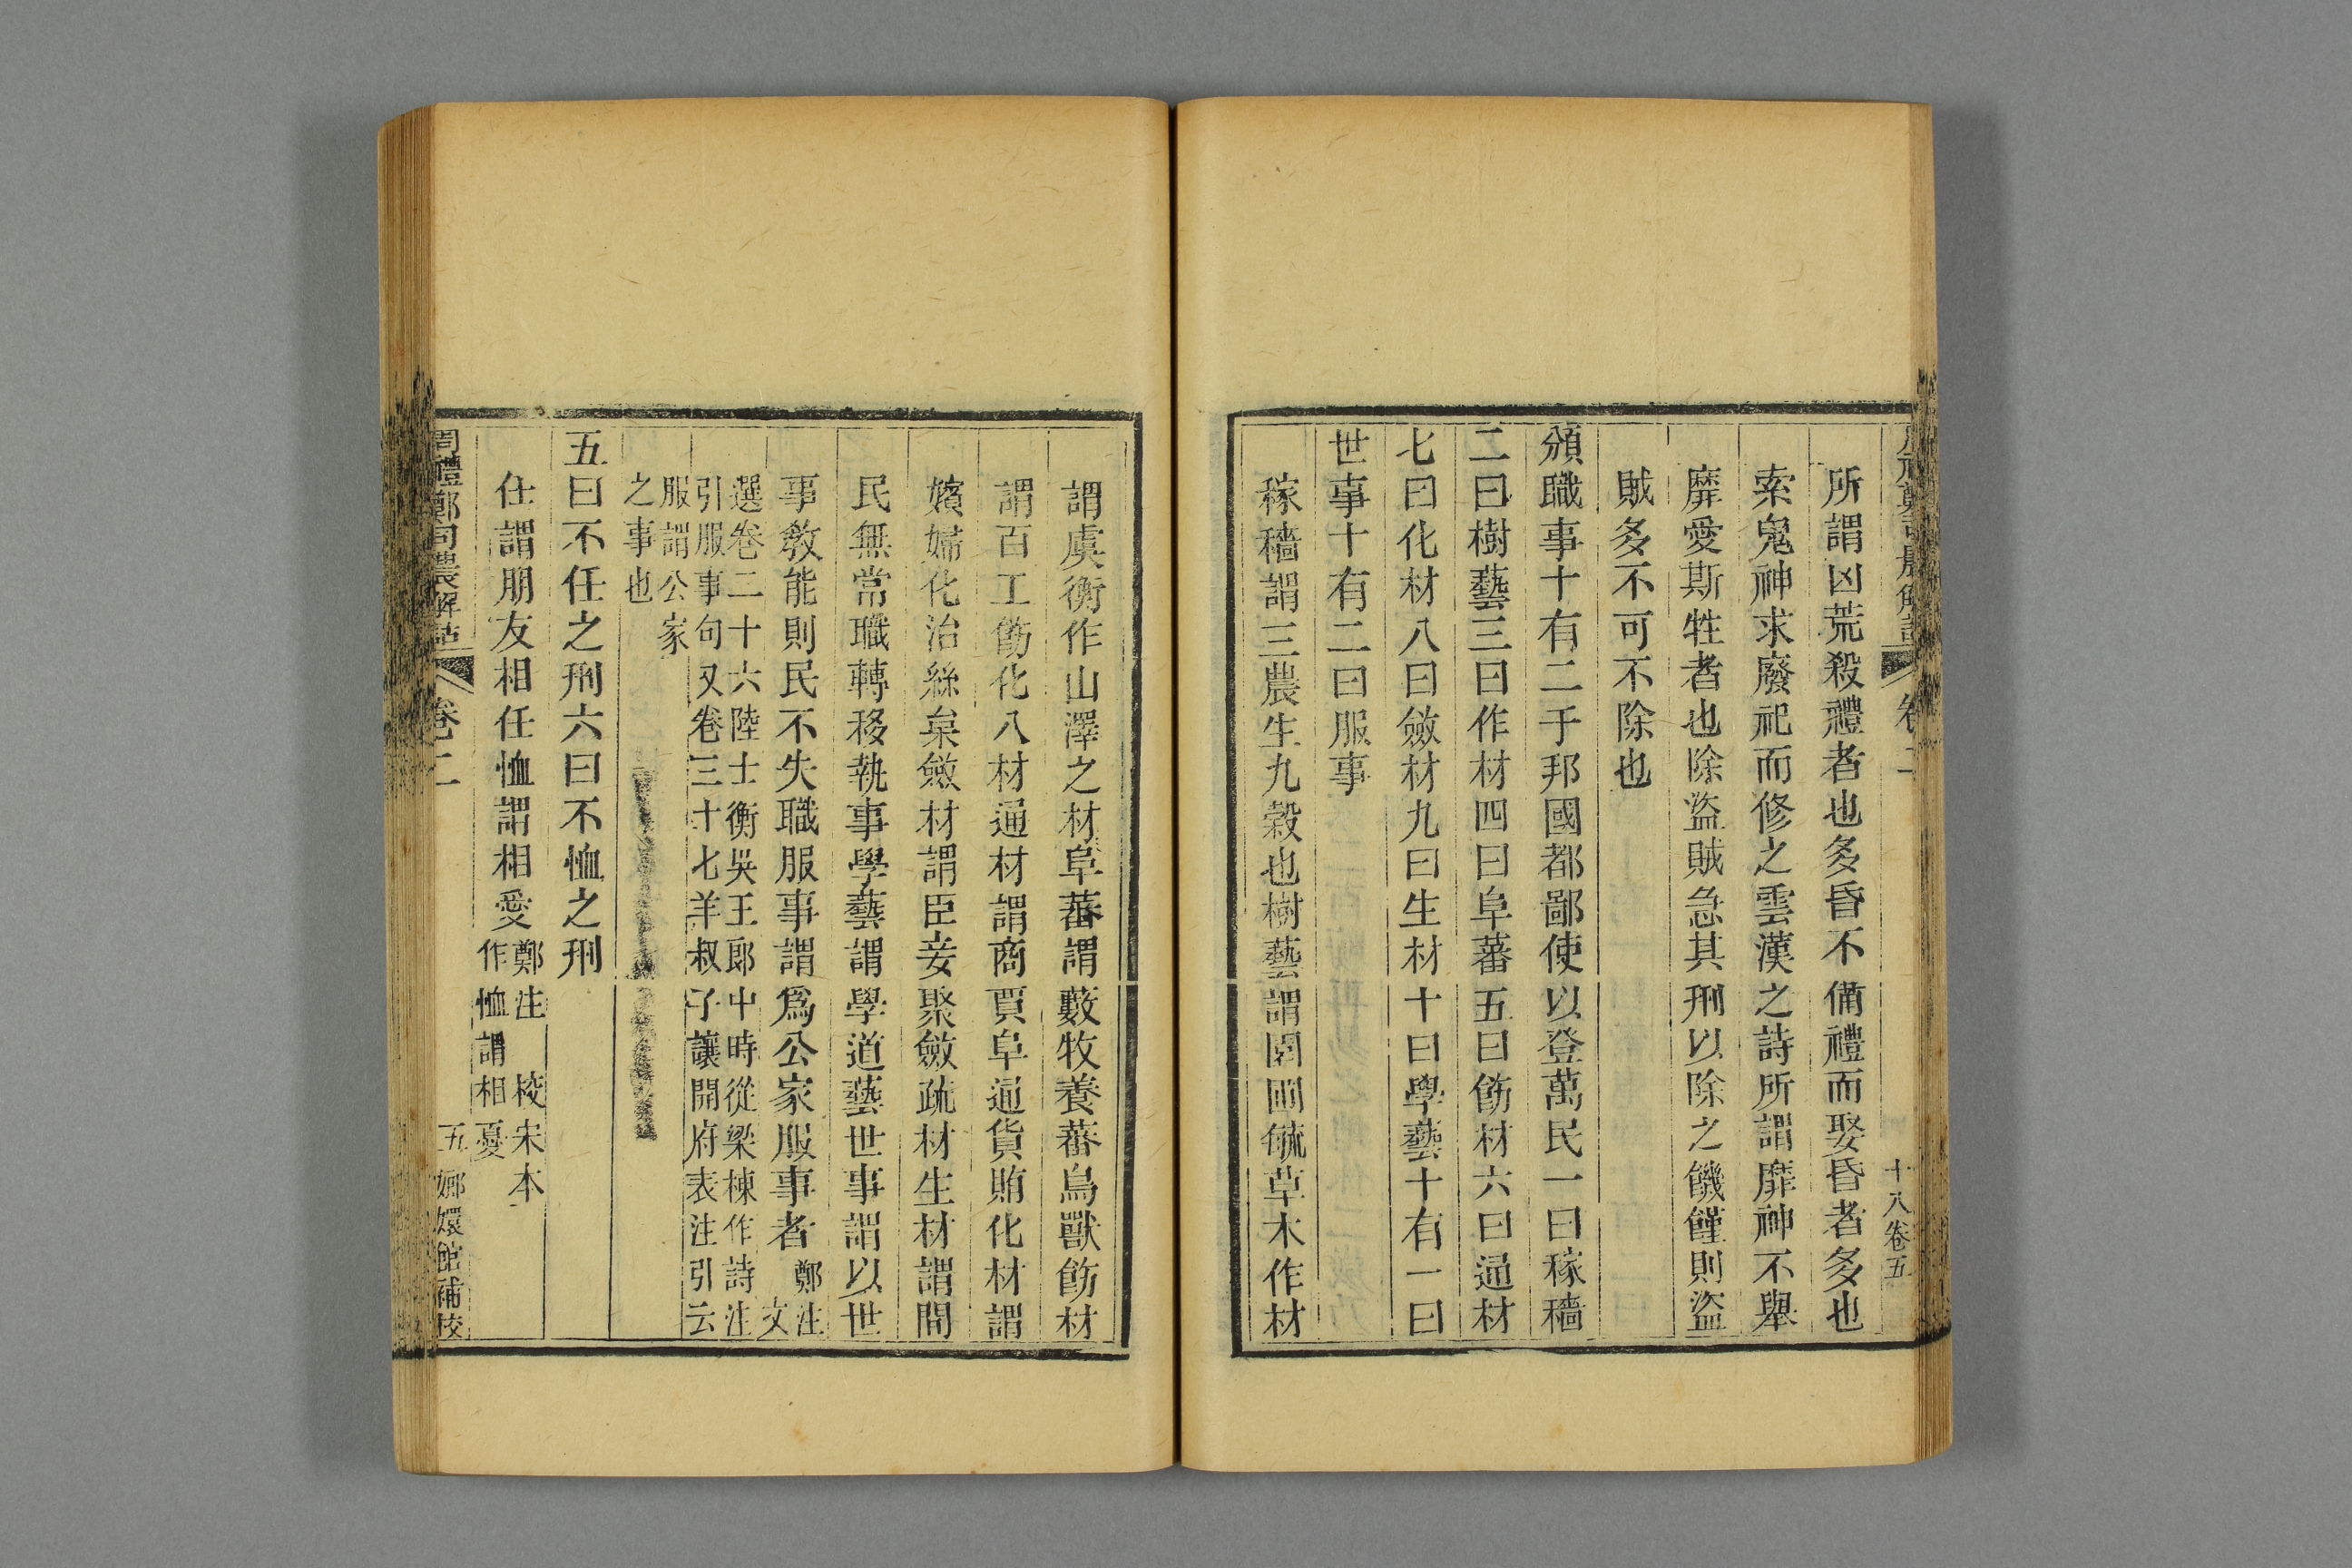 所謂凶荒殺禮者也多昏不備禮而娶昏者多也
索鬼神求廢祀而修之雲漢之詩所謂靡神不舉
靡愛斯牲者也除盜賊急其刑以除之饑饉則盜
賊多不可不除也
頒職事十有二于邦國都鄙使以登萬民一曰稼穡
二曰樹藝三曰作材四曰阜蕃五曰飭材六曰通材
七曰化材八曰斂材九曰生材十曰學藝十有一曰
世事十有二曰服事
稼穡謂三農生九穀也樹藝謂園圃毓草木作材
謂虞衡作山澤之材阜蕃謂藪牧養蕃鳥獸飭材
謂百工飭化八材通材謂商賈阜通貨賄化材謂
嬪婦化治絲枲斂材謂臣妾聚斂疏材生材謂閒
民無常職轉移執事學藝謂學道藝世事謂以世
事教能則民不失職服事謂爲公家服事者鄭注文
選卷二十六陸士衡吳王郎中時從梁棟作詩注
引服事句又卷三十七羊叔子讓開府表注引云
服謂公家
之事也
五曰不任之刑六曰不恤之刑
任謂朋友相任恤謂相愛鄭注 校宋本
作恤謂相憂
周禮鄭司農解詁 卷二 五 嫏嬛館補校
卷二
十八卷五